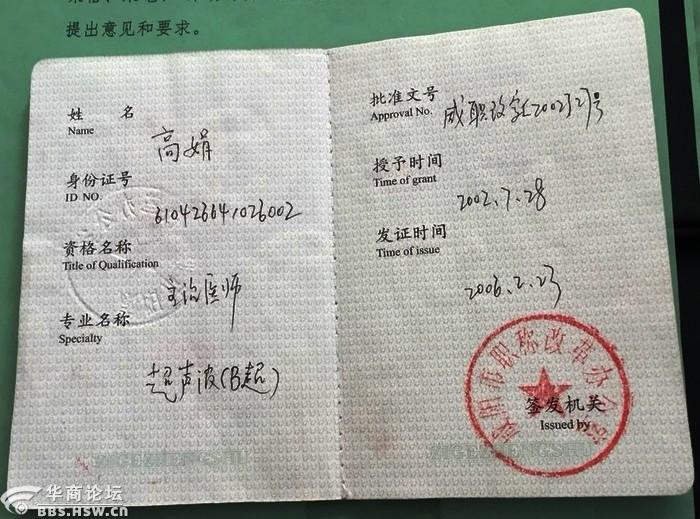 提出意见和要求。
姓 名
Name
高娟
身份证号
ID NO.
610426641026002
资格名称
Title of Qualification
主治医师
专业名称
Specialty
超声波(B超)
批准文号
Approval No.
咸职改字[2002]27号
授予时间
Time of grant
2002.7.28
发证时间
Time of issue
2006.2.23
咸阳市职称改革办公室
签发机关
Issued by
华商论坛
BBS.HSW.CN